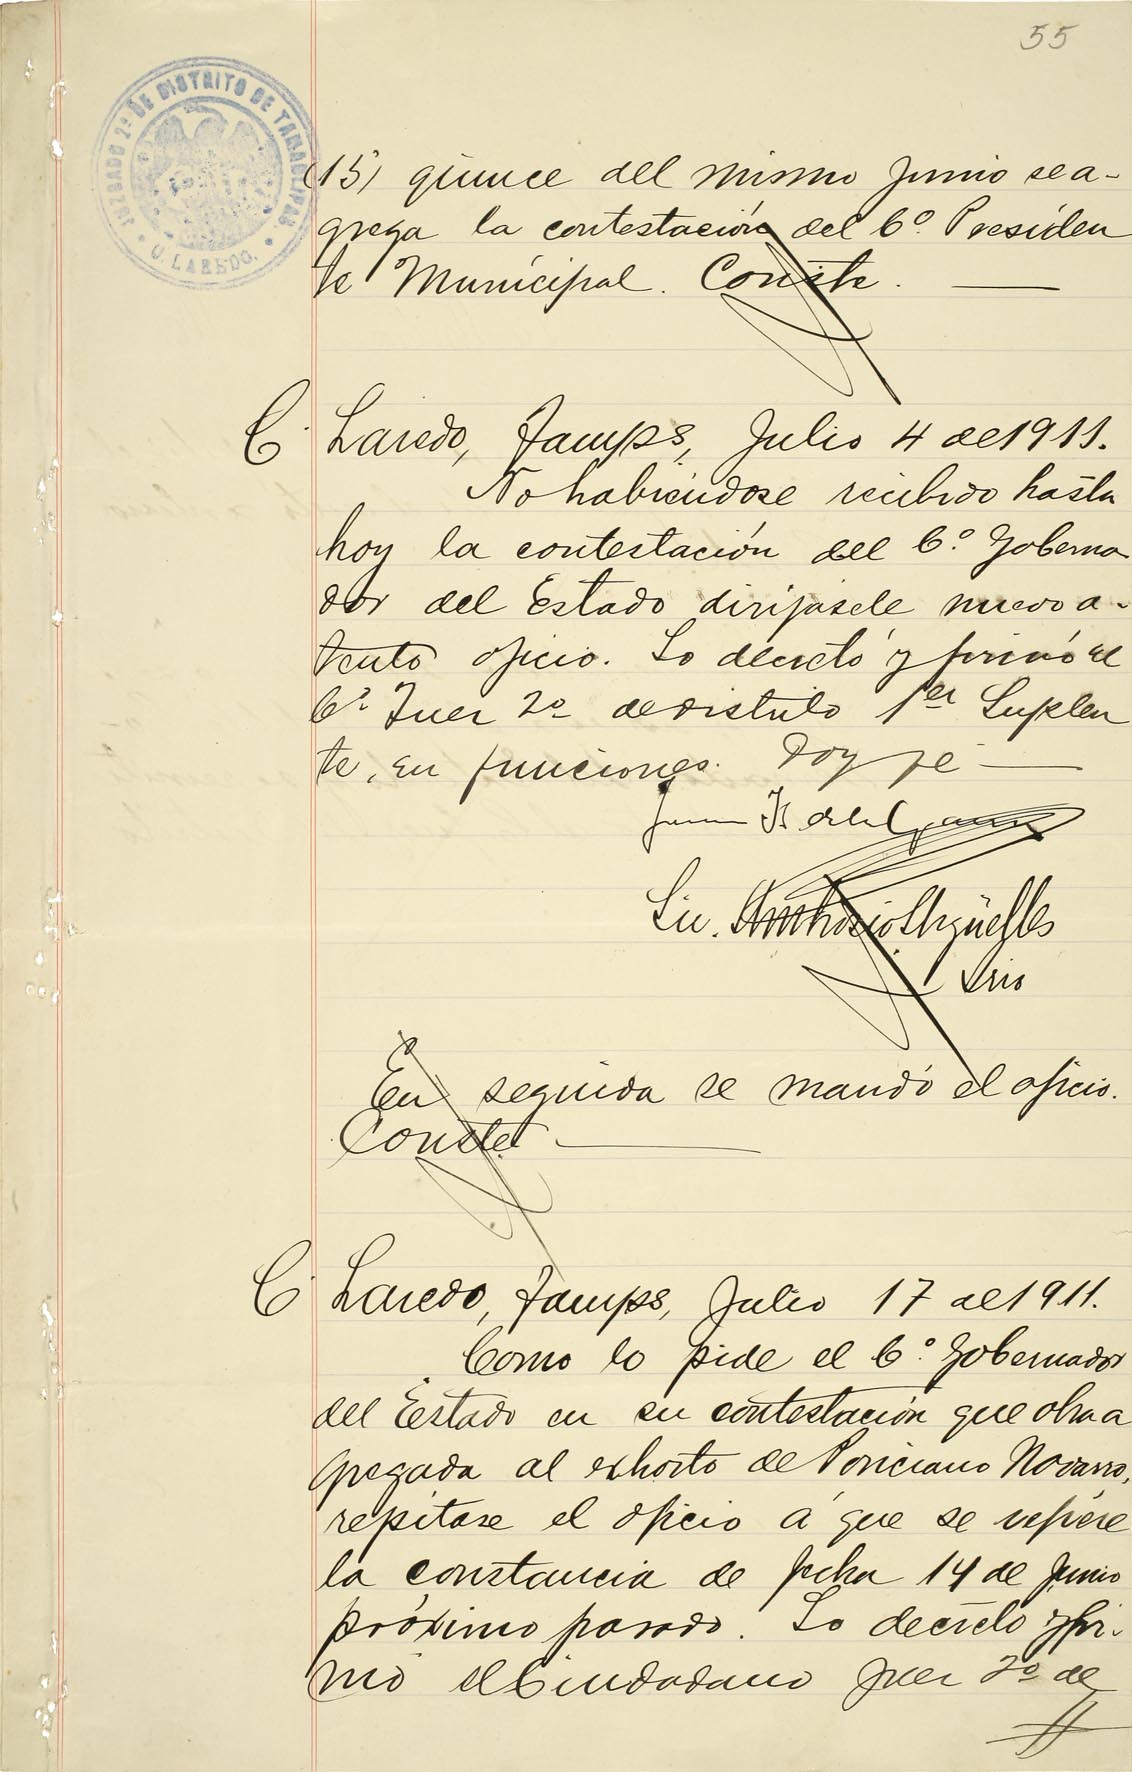 55
JUZGADO 2º DE DISTRITO DE TAMAULIPAS.
C. LAREDO.
(15) quince del mismo Junio se a-
grega la contestación del C.º Presiden
te Municipal. Conste.
C. Laredo, Tamps, Julio 4 de 1911.
No habiéndose recibido hasta
hoy la contestación del C.º Goberna
dor del Estado dirijasele nuevo a-
tento oficio. Lo decretó y firmó el
C.º Juez 2º de distrito 1er Suplen
te, en funciones. Doy fe
Juan de la Garza
Lic. Ambrosio Argüelles
Srio
En seguida se mandó el oficio.
Conste
C. Laredo, Tamps, Julio 17 de 1911.
Como lo pide el C.º Gobernador
del Estado en su contestación que obra a
gregada al exhorto de Ponciano Navarro,
repítase el oficio á que se refiere
la constancia de fecha 14 de Junio
próximo pasado. Lo decretó y fir-
mó el Ciudadano Juez 2º de